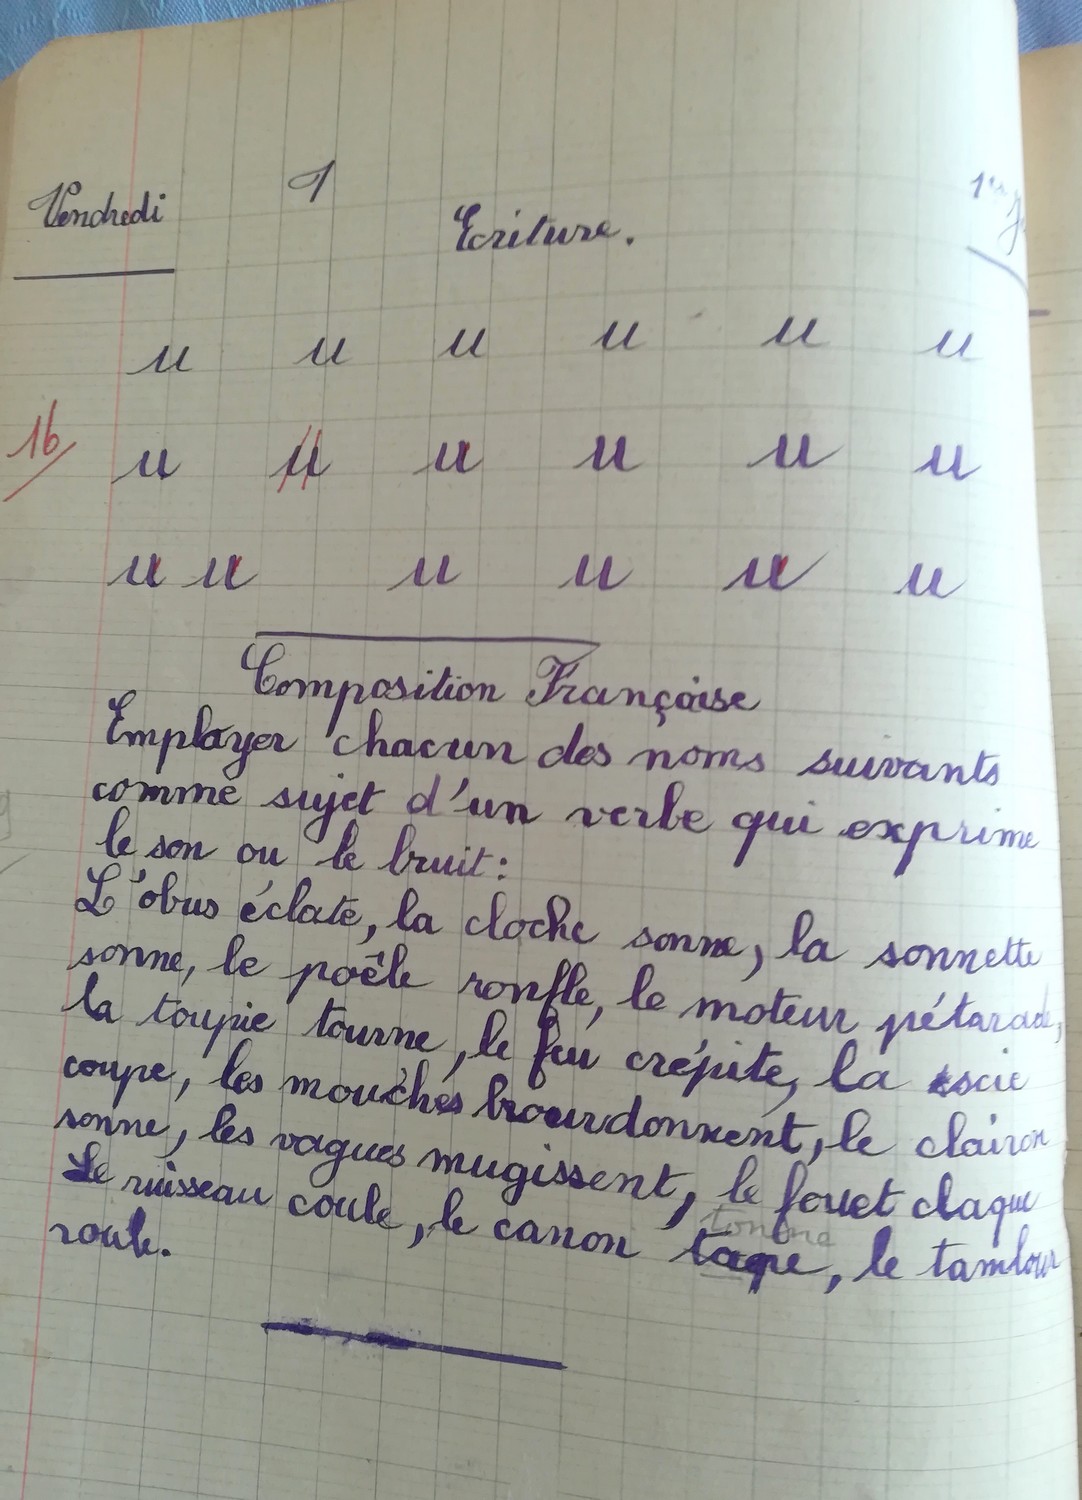 Vendredi 1 1er
Ecriture.
u u u u u u
16
u u u u u u
u u u u u u
Composition Françàise
Employer chacun des noms suivants
comme sujet d'un verbe qui exprime
le son ou le bruit:
L'obus éclate, la cloche sonne, la sonnette
sonne, le poêle ronfle, le moteur pétarade,
la toupie tourne, le feu crépite, la scie
coupe, les mouches bourdonnent, le clairon
sonne, les vagues mugissent, le fouet claque
tonne
Le ruisseau coule, le canon tape, le tambour
roule.